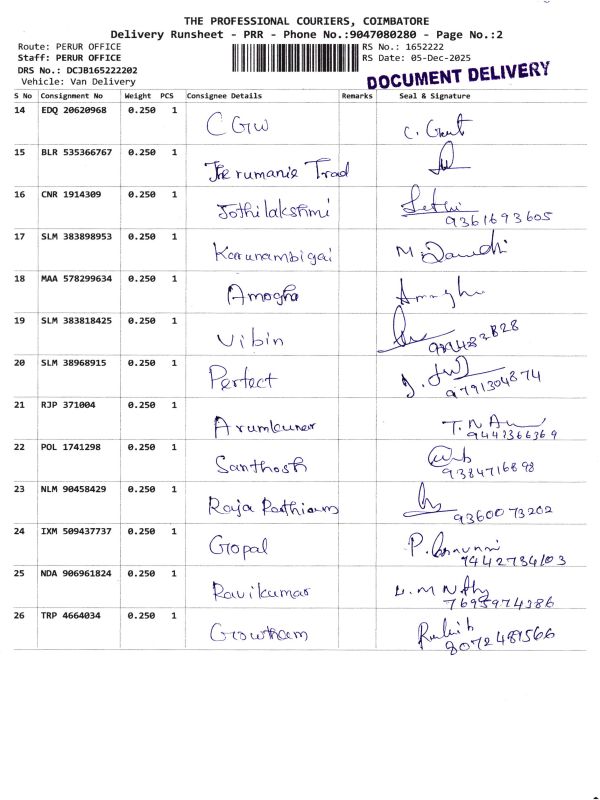 THE PROFESSIONAL COURIERS, COIMBATORE
Delivery Runsheet - PRR - Phone No.:9047080280 - Page No.:2
Route: PERUR OFFICE RS No.: 1652222
Staff: PERUR OFFICE RS Date: 05-Dec-2025
DRS No.: DCJB165222202
Vehicle: Van Delivery
DOCUMENT DELIVERY
S No Consignment No Weight PCS Consignee Details Remarks Seal & Signature
14 EDQ 20620968 0.250 1 C GW
15 BLR 535366767 0.250 1 Trad
16 CNR 1914309 0.250 1 Jothilakshmi
9361693605
17 SLM 383898953 0.250 1 Karunambigai M
18 MAA 578299634 0.250 1 Amogha
19 SLM 383818425 0.250 1 Vibin
20 SLM 38968915 0.250 1 Perfect
9791304874
21 RJP 371004 0.250 1 T. N
22 POL 1741298 0.250 1 Santhosh
9384716898
23 NLM 90458429 0.250 1 Raja
9360073202
24 IXM 509437737 0.250 1 Gopal P.
25 NDA 906961824 0.250 1 Ravikumar
7695974386
26 TRP 4664034 0.250 1 Growtham